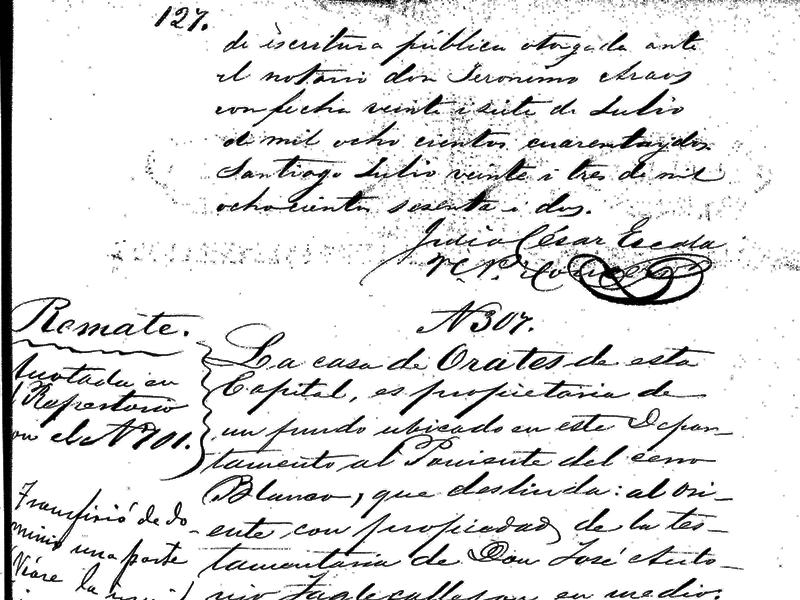 127.
de escritura pública otorgada ante
el notario don Jeronimo Araos
con fecha veinte i siete de Julio
de mil ocho cientos cuarenta y dos.
Santiago Julio veinte i tres de mil
ochocientos sesenta i dos.
Julio César Escala
N 307.
Remate.
Anotada en
el Repertorio
con el N 701.
Transfirió de do-
minio una parte
(Véase la
La casa de Orates de esta
Capital, es propietaria de
un fundo ubicado en este Depar-
tamento al Poniente del cerro
Blanco, que deslinda: al Ori-
ente con propiedad de la tes-
tamentaria de Don José Anto-
nio Tagle calleson en medio;